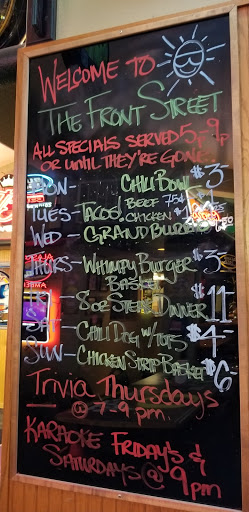 WELCOME TO
THE FRONT STREET
ALL SPECIALS SERVED 5P-9P
OR UNTIL THEY'RE GONE!
MON- CHILI BOWL $3-
TUES- TACOS! BEEF 75¢
CHICKEN $1
WED- GRANDBURGER
THURS- WHIMPY BURGER $3
BASKET
FRI- 8OZ STEAK DINNER $11
SAT- CHILI DOG W/TOTS $4-
SUN- CHICKEN STRIP BASKET $6-
TRIVIA THURSDAYS
@ 7-9pm.
KARAOKE FRIDAY'S &
SATURDAYS @ 9pm